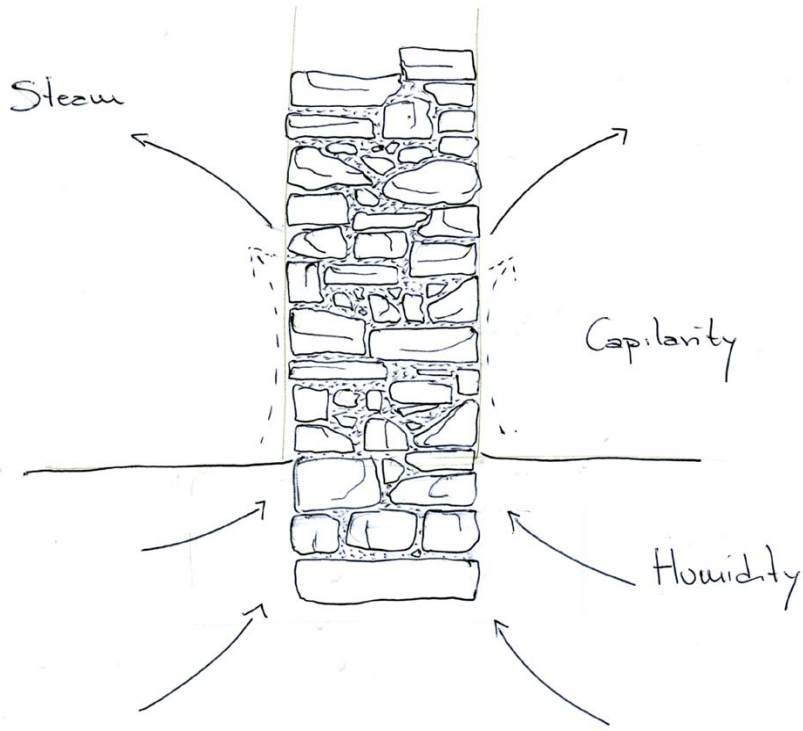 Steam
Capilarity
Humidity